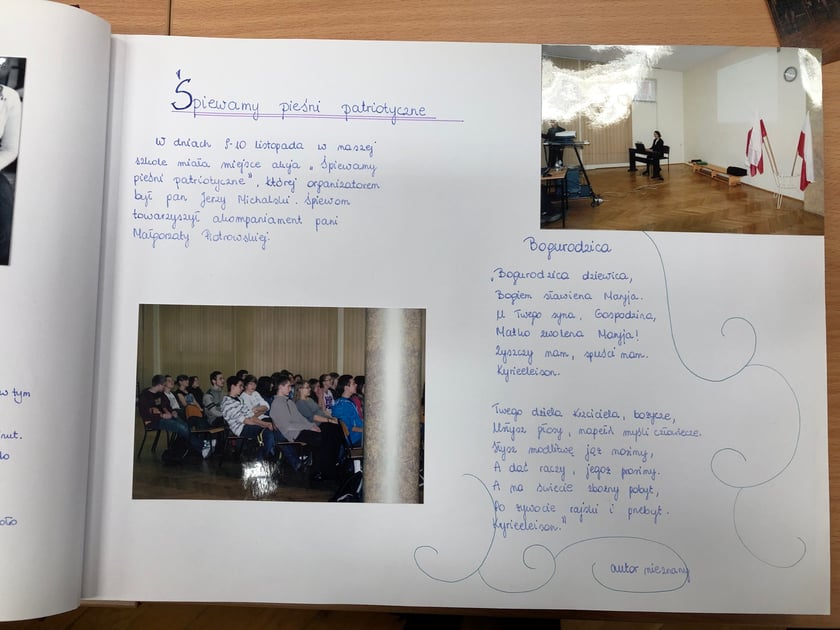 Śpiewamy pieśni patriotyczne
W dniach 8-10 listopada w naszej
szkole miała miejsce akcja „Śpiewamy
pieśni patriotyczne", której organizatorem
był pan Jerzy Michalski. Śpiewom
towarzyszył akompaniament pani
Małgorzaty Piotrowskiej.
Bogurodzica
„Bogurodzica dziewica,
Bogiem sławiena Maryja.
U Twego syna, Gospodzina,
Matko zwolena Maryja!
Zyszczy nam, spuści nam.
Kyrieeleison.
Twego dzieła Krzciciela, bożycze,
Usłysz głosy, napełń myśli człowiecze.
Słysz modlitwę jąż nosimy,
A dać raczy, jegoż prosimy.
A na świecie zbożny pobyt,
Po żywocie rajski i przebyt.
Kyrieeleison."
autor nieznany
w tym
nut.